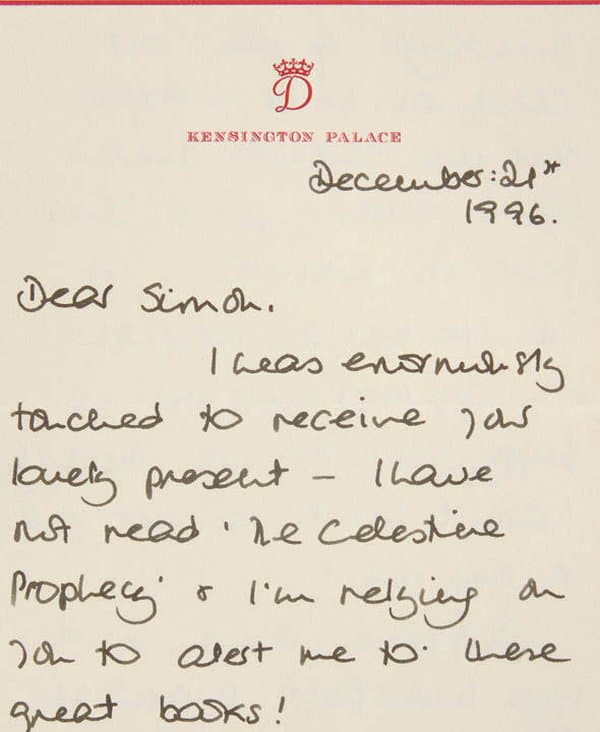 D
KENSINGTON PALACE
December: 21st
1996.
Dear Simon.
I was enormously
touched to receive your
lovely present – I have
not read 'The Celestine
Prophecy' & I'm relying on
you to alert me to these
great books!